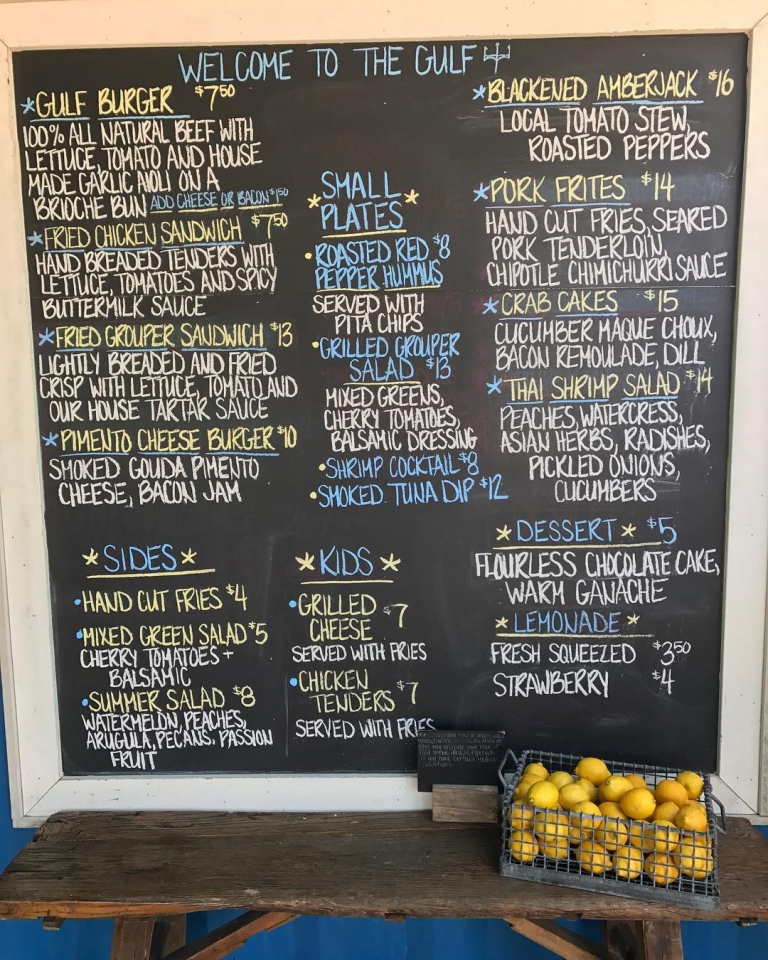 WELCOME TO THE GULF
*GULF BURGER $7⁵⁰
100% ALL NATURAL BEEF WITH
LETTUCE, TOMATO AND HOUSE
MADE GARLIC AIOLI ON A
BRIOCHE BUN ADD CHEESE OR BACON $1⁵⁰
*FRIED CHICKEN SANDWICH $7⁵⁰
HAND BREADED TENDERS WITH
LETTUCE, TOMATOES AND SPICY
BUTTERMILK SAUCE
*FRIED GROUPER SANDWICH $13
LIGHTLY BREADED AND FRIED
CRISP WITH LETTUCE, TOMATO AND
OUR HOUSE TARTAR SAUCE
*PIMENTO CHEESE BURGER $10
SMOKED GOUDA PIMENTO
CHEESE, BACON JAM
*SMALL
PLATES*
•ROASTED RED $8
PEPPER HUMMUS
SERVED WITH
PITA CHIPS
•GRILLED GROUPER
SALAD $13
MIXED GREENS,
CHERRY TOMATOES,
BALSAMIC DRESSING
•SHRIMP COCKTAIL $8
•SMOKED TUNA DIP $12
*BLACKENED AMBERJACK $16
LOCAL TOMATO STEW,
ROASTED PEPPERS
*PORK FRITES $14
HAND CUT FRIES, SEARED
PORK TENDERLOIN,
CHIPOTLE CHIMICHURRI SAUCE
*CRAB CAKES $15
CUCUMBER MAQUE CHOUX,
BACON REMOULADE, DILL
*THAI SHRIMP SALAD $14
PEACHES, WATERCRESS,
ASIAN HERBS, RADISHES,
PICKLED ONIONS,
CUCUMBERS
*SIDES*
•HAND CUT FRIES $4
•MIXED GREEN SALAD $5
CHERRY TOMATOES +
BALSAMIC
•SUMMER SALAD $8
WATERMELON, PEACHES,
ARUGULA, PECANS, PASSION
FRUIT
*KIDS*
•GRILLED
CHEESE $7
SERVED WITH FRIES
•CHICKEN
TENDERS $7
SERVED WITH FRIES
*DESSERT* $5
FLOURLESS CHOCOLATE CAKE,
WARM GANACHE
*LEMONADE*
FRESH SQUEEZED $3⁵⁰
STRAWBERRY $4